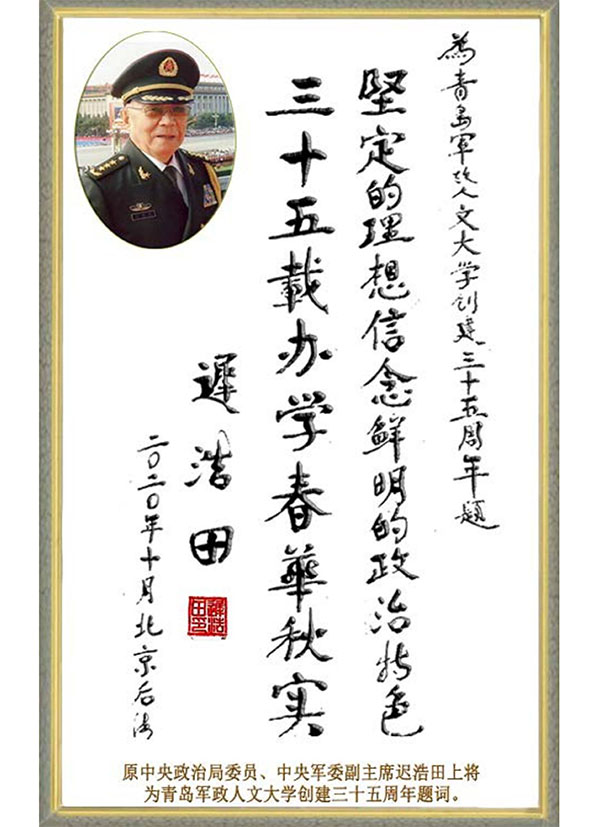 為青岛军政人文大学创建三十五周年题
坚定的理想信念鲜明的政治特色
三十五载办学春華秋实
遲浩田
二〇二〇年十月北京后海
原中央政治局委员、中央军委副主席迟浩田上将
为青岛军政人文大学创建三十五周年题词。